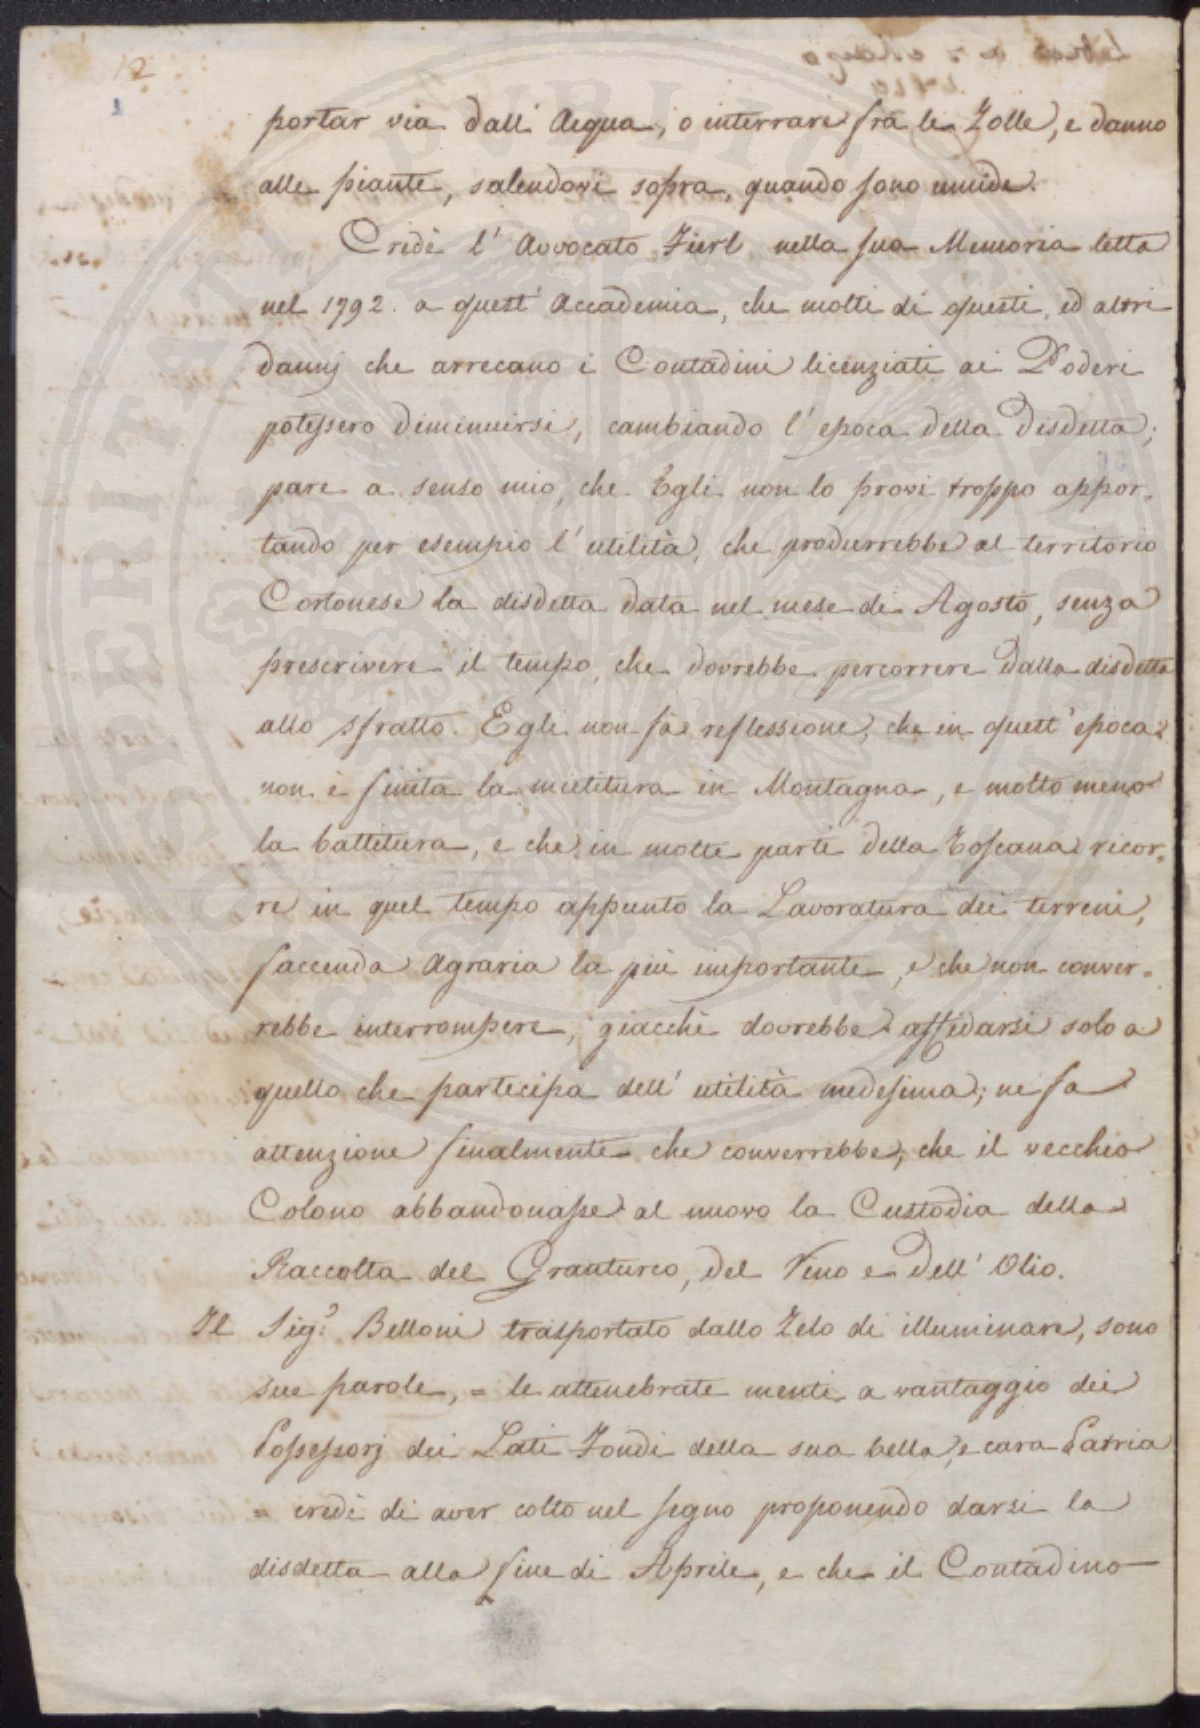 12
portar via dall' Acqua, o interrare fra le Zolle, e danno
alle piante, salendovi sopra, quando sono umide.
Credè l' Avvocato Fierli nella sua Memoria letta
nel 1792. a quest' Accademia, che molti di questi, ed altri
dannj che arrecano i Contadini licenziati ai Poderi
potessero diminuirsi, cambiando l' epoca della Disdetta;
pare a senso mio, che Egli non lo provi troppo appor-
tando per esempio l' utilità, che produrrebbe al territorio
Cortonese la disdetta data nel mese di Agosto, senza
prescrivere il tempo, che dovrebbe percorrere dalla disdetta
allo sfratto. Egli non fa reflessione, che in quest' epoca
non è finita la mietitura in Montagna, e molto meno
la battitura, e che in molte parti della Toscana ricor-
re in quel tempo appunto la Lavoratura dei terreni,
faccenda Agraria la più importante, e che non conver-
rebbe interrompere, giacchè dovrebbe affidarsi solo a
quello che partecipa dell' utilità medesima; ne fa
attenzione finalmente che converrebbe, che il vecchio
Colono abbandonasse al nuovo la Custodia della
Raccolta del Granturco, del Vino e dell' Olio.
Il Sig.r Belloni trasportato dallo Zelo di illuminare, sono
sue parole, = le attenebrate menti a vantaggio dei
Possessorj dei Lati Fondi della sua bella, e cara Patria
= credè di aver colto nel segno proponendo darsi la
disdetta alla fine di Aprile, e che il Contadino